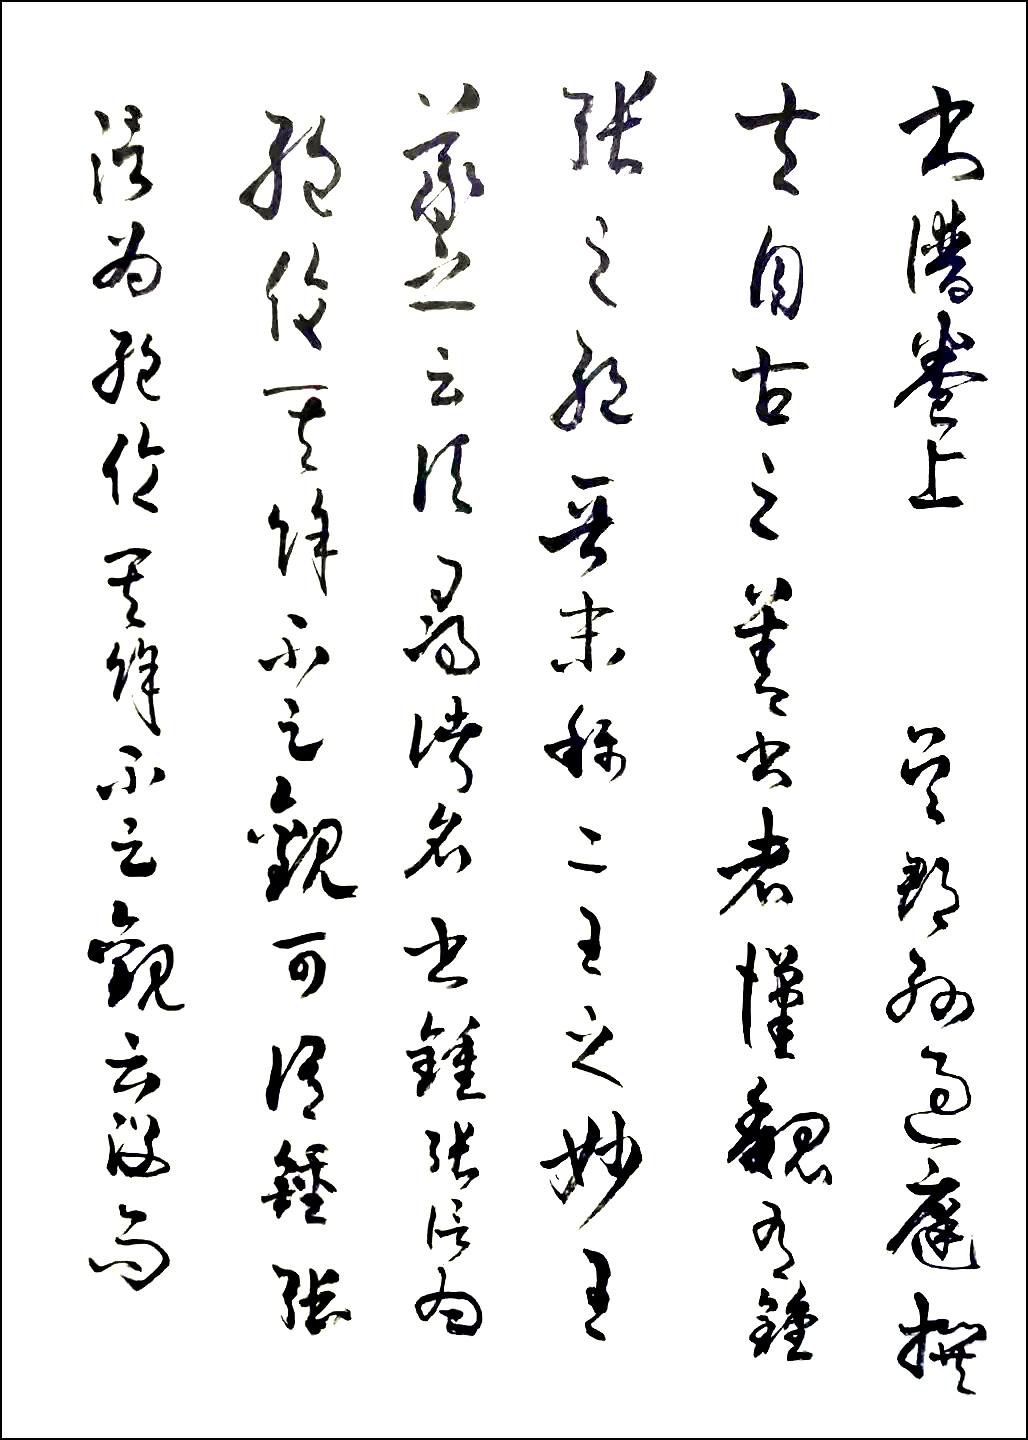 書譜卷上 吳郡孫過庭撰
夫自古之善書者漢魏有鍾
張之絕晉末稱二王之妙王
羲之云頃尋諸名書鍾張信為
絕倫其餘不足觀可謂鍾張
信為絕倫其餘不足觀云沒而